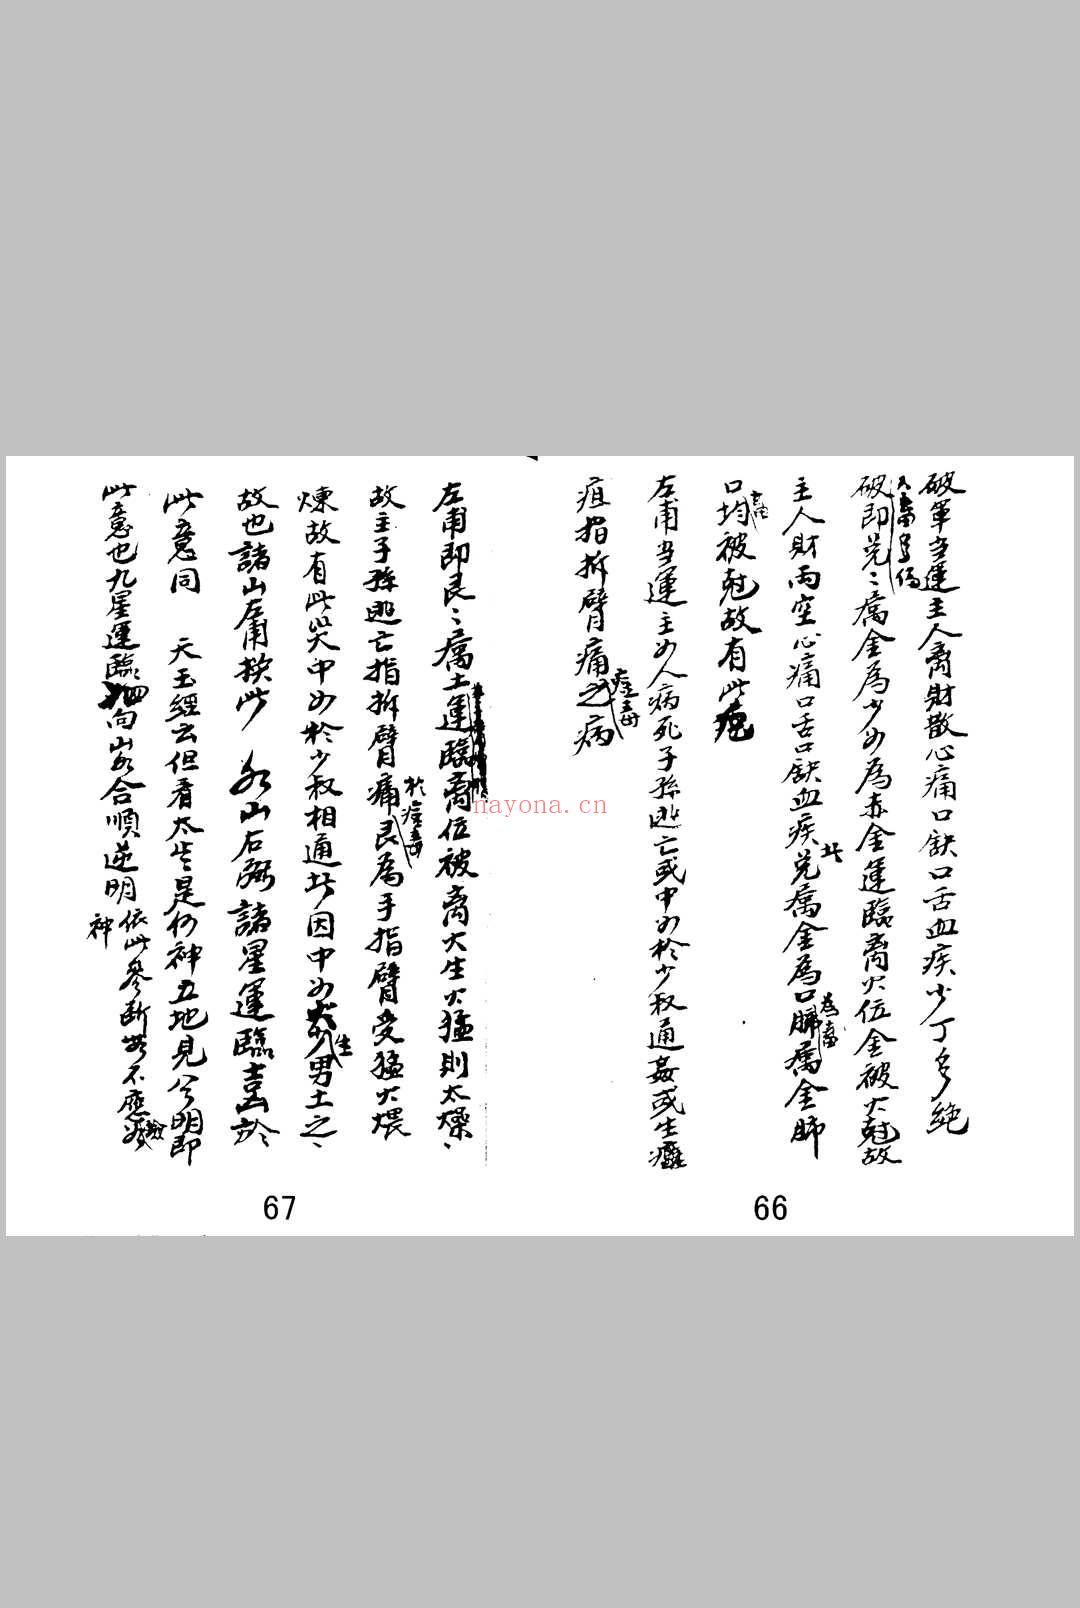 破軍当運主人离財散心痛口缺口舌血疾少丁多絕
破即兑〻属金為少女為赤金運臨离火位金被火尅故
主人財両空心痛口舌口缺血疾兑属金為口肺属金肺
口均被尅故有此
左甫当運主女人病死子孫逃亡或中女於少叔通姦或生
疽指折臂痛之病
66
左甫即艮〻属土運臨离位被离火生火猛則太燥〻
故主子孫逃亡指折臂痛艮為手指臂受猛火煨
煉故有此災中女於少叔相通此因中女男土之〻
故也諸山左甫挨此 右弼諸星運臨
此意同 天玉經云但看太歲是何神立地見分明即
此意也九星運臨向山合順逆明依此參断不應
神
67
nayona.cn